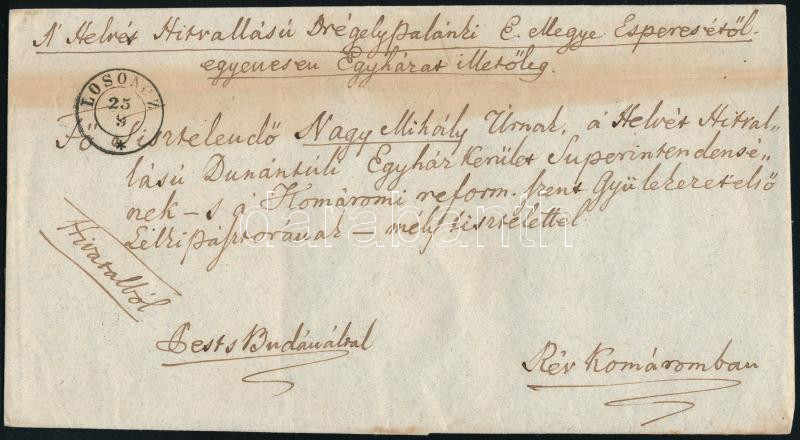 A' Helvét Hitvallású Drégelypalánki E. Megye Esperesétől
egyenesen Egyházat illetőleg.
LOSONCZ
25
Fő Tisztelendő Nagy Mihály Úrnak, a Helvét Hitval-
lású Dunántúli Egyház Kerület Superintendensé-
nek – s a Komáromi reform. Szent Gyülekezet első
Lelki pásztorának – mély tisztelettel
darabanth
Hivatalból
Pest s Budán által
Rév Komáromban